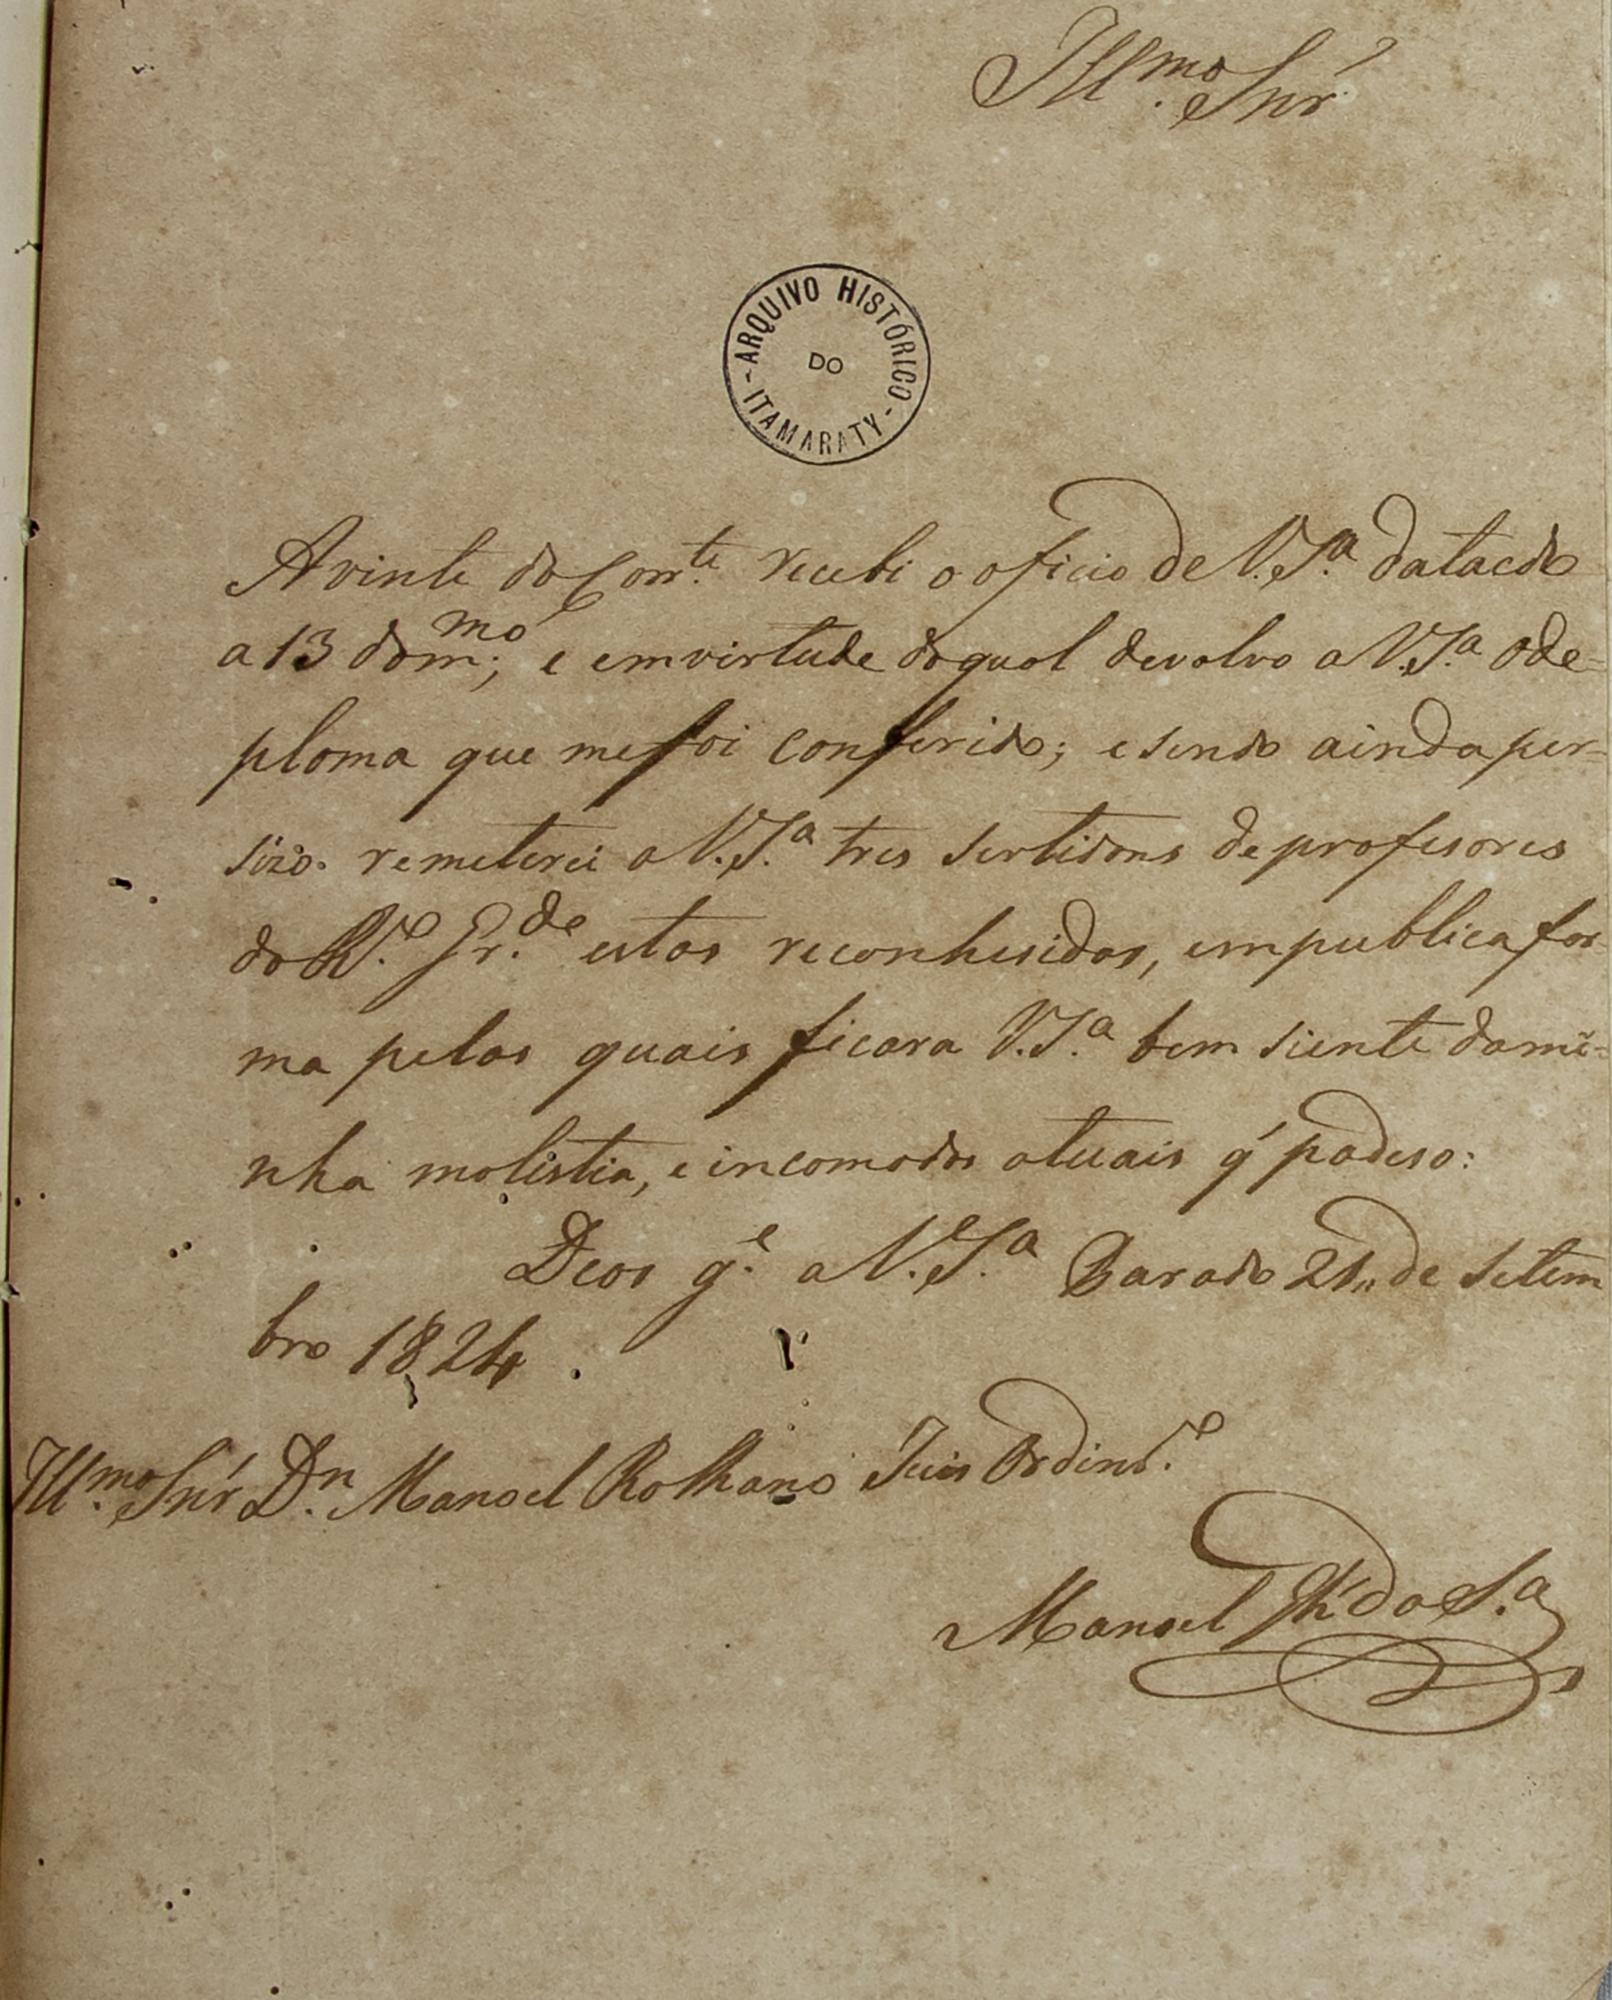 Ill.mo Snr'
ARQUIVO HISTÓRICO
DO
ITAMARATY
A vinte do Corr.te recebi o oficio de V.S.a datacdo
a 13 dom.mo; e em virtude do qual devolvo a V.S.a o de=
ploma que me foi conferido; e sendo ainda per=
sizo. remeterei a V.S.a tres sertidons de profesores
do R.o Gr.de estas reconhesidas, em publica for-
ma pelas quais ficara V.S.a bem siente da mi=
nha molistia, e incomodos atuais q' padeso:
Deos g.e a V.S.a Barado 21,, de Setem
bro 1824.
Ill.mo Snr' D.n Manoel Rolhano Juis Ordinr.o
Manoel da S.a